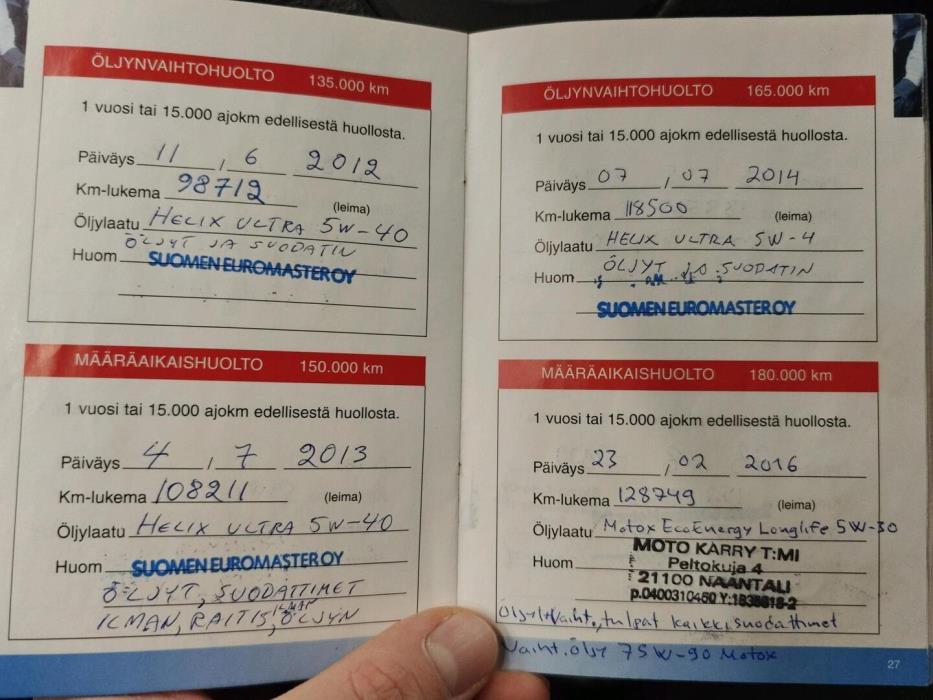 ÖLJYNVAIHTOHUOLTO 135.000 km
1 vuosi tai 15.000 ajokm edellisestä huollosta.
Päiväys 11 , 6 2012
Km-lukema 98712 (leima)
Öljylaatu HELIX ULTRA 5W-40
ÖLJYT JA SUODATIN
Huom SUOMEN EUROMASTER OY
MÄÄRÄAIKAISHUOLTO 150.000 km
1 vuosi tai 15.000 ajokm edellisestä huollosta.
Päiväys 4 / 7 2013
Km-lukema 108211 (leima)
Öljylaatu HELIX ULTRA 5W-40
Huom SUOMEN EUROMASTER OY
ÖLJYT, SUODATTIMET
ILMAN, RAITIS ILMAN, ÖLJYN
ÖLJYNVAIHTOHUOLTO 165.000 km
1 vuosi tai 15.000 ajokm edellisestä huollosta.
Päiväys 07 / 07 2014
Km-lukema 118500 (leima)
Öljylaatu HELIX ULTRA 5W-4
Huom ÖLJYT JA SUODATIN
SUOMEN EUROMASTER OY
MÄÄRÄAIKAISHUOLTO 180.000 km
1 vuosi tai 15.000 ajokm edellisestä huollosta.
Päiväys 23 , 02 2016
Km-lukema 128749 (leima)
Öljylaatu Motox EcoEnergy Longlife 5W-30
MOTO KARRY T:MI
Huom Peltokuja 4
21100 NAANTALI
p.0400310450
tulpat kaikki suodattimet
Vaiht. öljy 75W-90 Motox
27